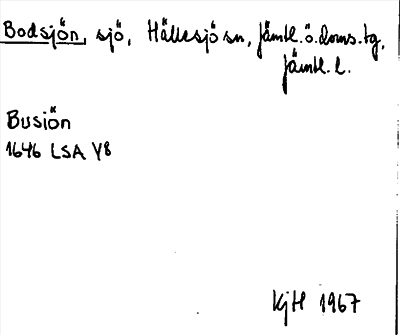 Bodsjön, sjö, Hällesjö sn, Jämtl. ö. doms. tg,
Jämtl. l.
Busiön
1646 LSA Y8
KjH 1967